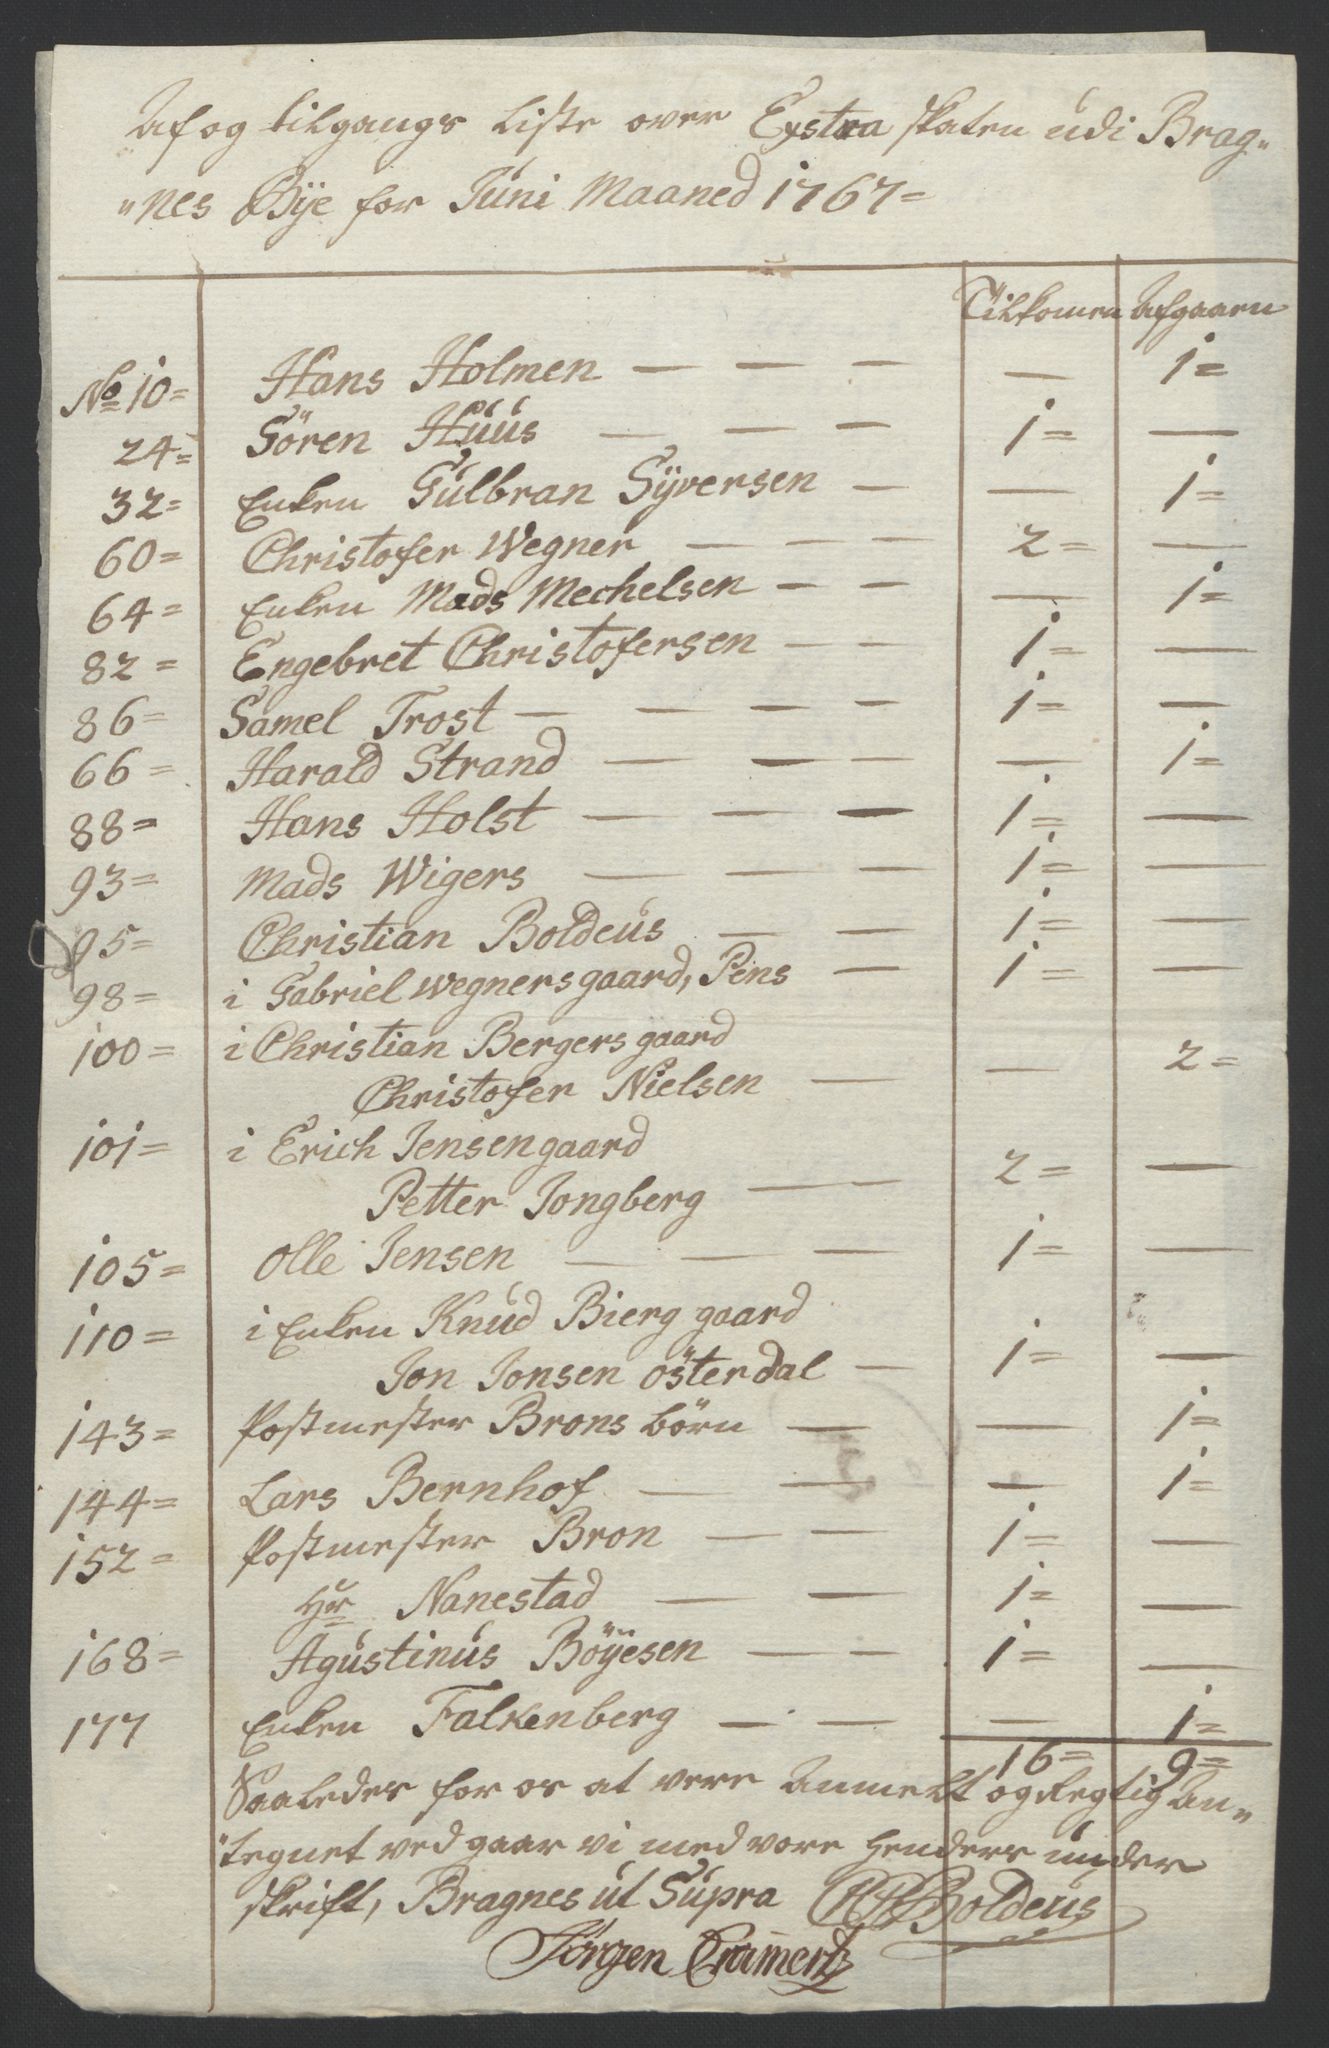 Af og tilgangs Liste over Exstra skaten udi Brag„
„nes Bÿe for Juni Maaned 1767=
Tilkomen Afgaaen
No 10= Hans Holmen — — — — 1=
24= Sören Huus — — — 1= —
32= Enken Gulbran Sÿversen — — 1=
60= Christofer Wegner — — — 2= —
64= Enken Mads Mechelsen — — — 1=
82= Engebret Christofersen — — 1= —
86= Samel Trost — — — — 1= —
66= Harald Strand — — — — 1=
88= Hans Holst — — — 1= —
93= Mads Wigers — — — 1= —
95= Christian Boldeus — — 1= —
98= i Gabriel Wegners gaard, Pens — 1= —
100= i Christian Bergers gaard
Christofer Nielsen — — 2=
101= i Erich Jensen gaard
Petter Jongberg — — 2= —
105= Olle Jensen — — — 1= —
110= i Enken Knud Bierg gaard
Jon Jonsen österdal — 1= —
143= Postmester Brons börn — — 1=
144= Lars Bernhof — — — 1=
152= Postmester Bron — — 1= —
Hr Nanestad — — 1= —
168= Agustinus Böÿesen — — 1= —
177 Enken Falkenberg — — — 1=
16= 9=
Saaledes for os at vere Anmelt og Regtig An„
„tegnet ved gaar vi med vore Henders under
skrift, Bragnes ut Supra Boldeus
Jörgen Cramertz